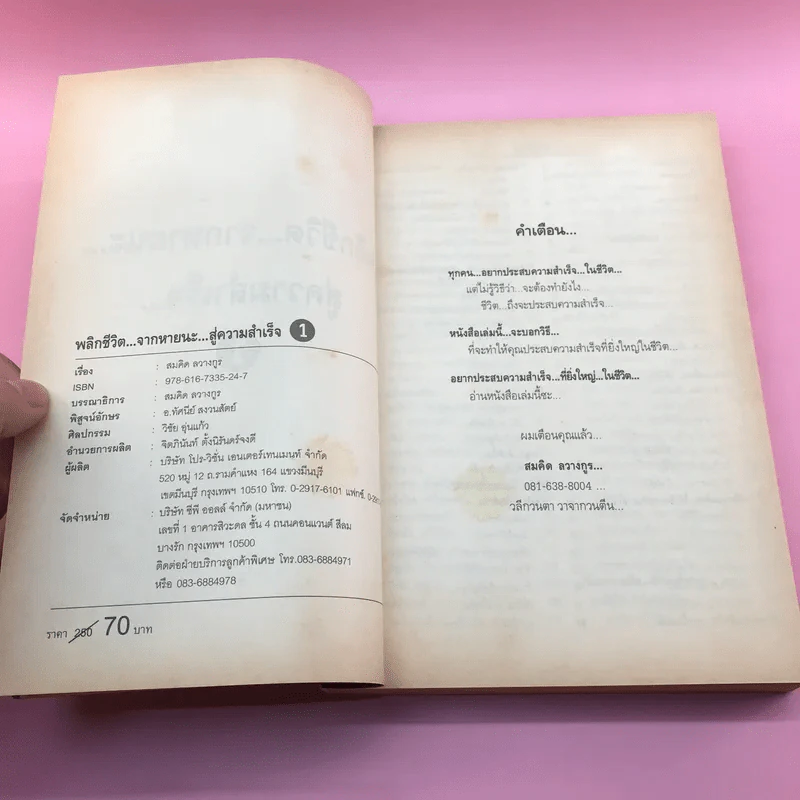 พลิกชีวิต...จากหายนะ...สู่ความสำเร็จ 1
เรื่อง : สมคิด ลวางกูร
ISBN : 978-616-7335-24-7
บรรณาธิการ : สมคิด ลวางกูร
พิสูจน์อักษร : อ.ทัศนีย์ สงวนสัตย์
ศิลปกรรม : วิชัย อุ่นแก้ว
อำนวยการผลิต : จิตภินันท์ ตั้งนิรันดร์จงดี
ผู้ผลิต : บริษัท โปร-วิชั่น เอนเตอร์เทนเมนท์ จำกัด
520 หมู่ 12 ถ.รามคำแหง 164 แขวงมีนบุรี
เขตมีนบุรี กรุงเทพฯ 10510 โทร. 0-2917-6101 แฟกซ์.
จัดจำหน่าย : บริษัท ซีพี ออลล์ จำกัด (มหาชน)
เลขที่ 1 อาคารสิวะดล ชั้น 4 ถนนคอนแวนต์ สีลม
บางรัก กรุงเทพฯ 10500
ติดต่อฝ่ายบริการลูกค้าพิเศษ โทร.083-6884971
หรือ 083-6884978
ราคา 280 70 บาท
คำเตือน...
ทุกคน...อยากประสบความสำเร็จ...ในชีวิต...
แต่ไม่รู้วิธีว่า...จะต้องทำยังไง...
ชีวิต...ถึงจะประสบความสำเร็จ...
หนังสือเล่มนี้...จะบอกวิธี...
ที่จะทำให้คุณประสบความสำเร็จที่ยิ่งใหญ่ในชีวิต...
อยากประสบความสำเร็จ...ที่ยิ่งใหญ่...ในชีวิต...
อ่านหนังสือเล่มนี้ซะ...
ผมเตือนคุณแล้ว...
สมคิด ลวางกูร...
081-638-8004 ...
วลีกวนตา วาจากวนตีน...